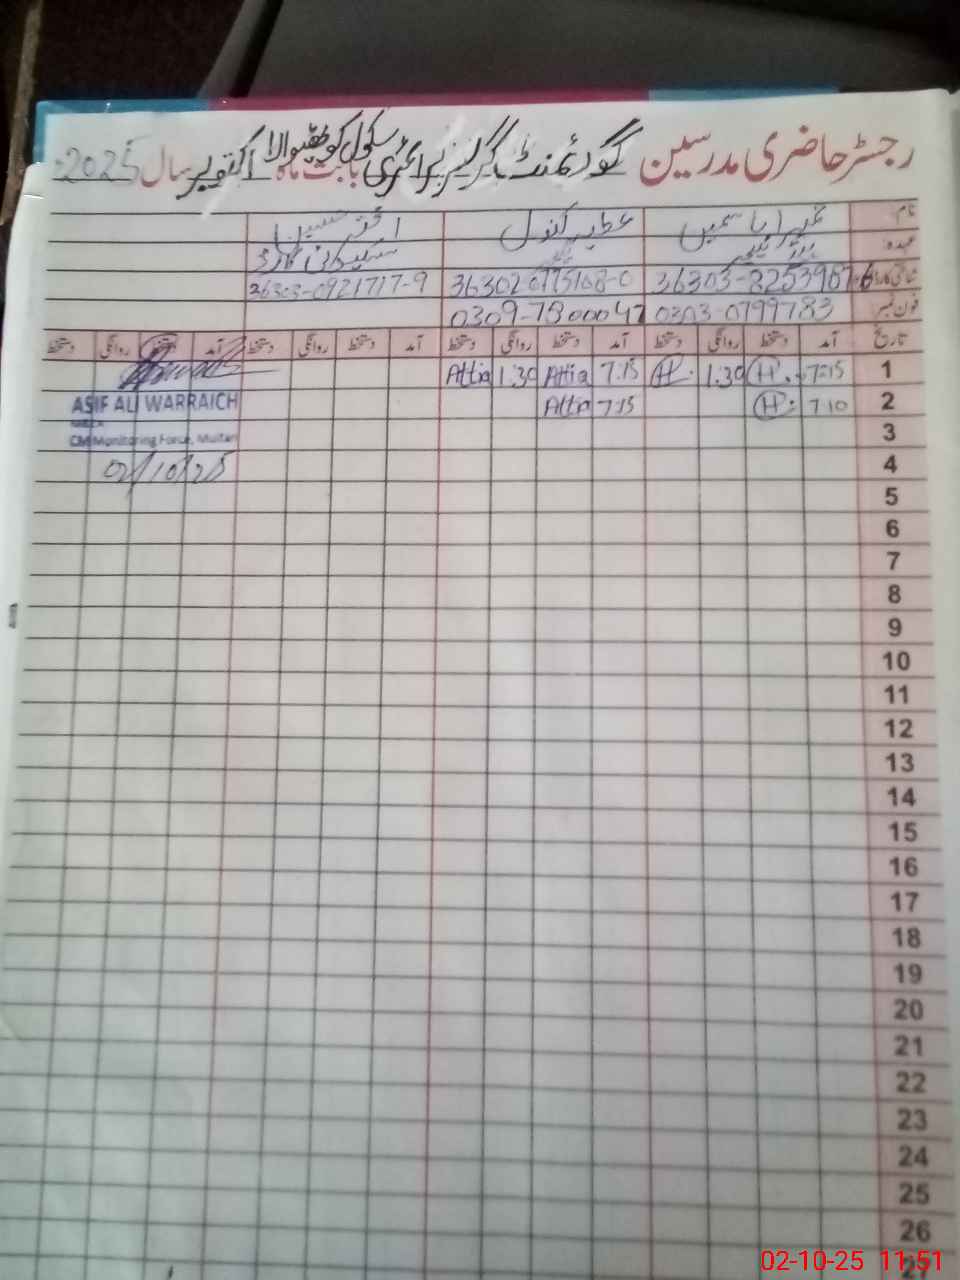 رجسٹر حاضری مدرسین گورنمنٹ گرلز پرائمری سکول کوٹھیوالا بابت ماہ اکتوبر سال 2025
نام: حمیرا یاسمین عطیہ کنول اختر حسین
عہدہ: ٹیچر ٹیچر سیکیورٹی گارڈ
شناختی کارڈ 36303-8253967-6 36302-0775168-0 36303-0921717-9
فون نمبر 0303-0799783 0309-7800047
تاریخ آمد دستخط روانگی دستخط آمد دستخط روانگی دستخط آمد دستخط روانگی دستخط آمد دستخط روانگی دستخط
1 7:15 H. 1:30 H. 7:15 Attia 1:30 Attia
2 7:10 H. 7:15 Attia
ASIF ALI WARRAICH
3
CM Monitoring Force, Multan
4
02/10/25
5
6
7
8
9
10
11
12
13
14
15
16
17
18
19
20
21
22
23
24
25
26
27
02-10-25 11:51